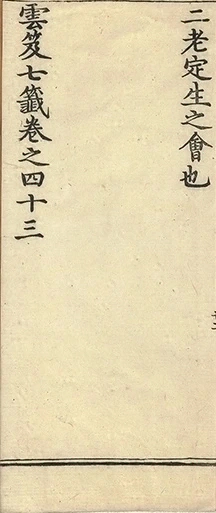 二老定生之會也
雲笈七籤卷之四十三